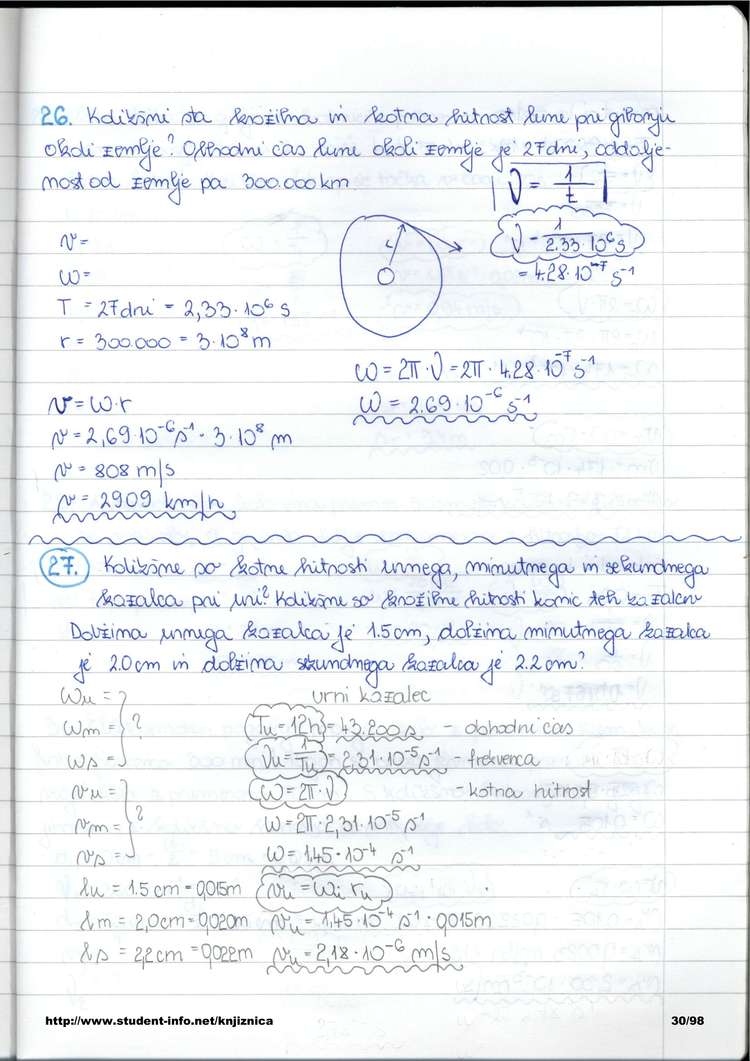 26. Kolikšni sta krožilna in kotna hitrost lune pri gibanju
okoli zemlje? Obhodni čas lune okoli zemlje je 27 dni, oddalje-
nost od zemlje pa 300.000 km
ν = 1/t
v =
ω =
T = 27 dni = 2,33·10⁶ s
r = 300.000 = 3·10⁸ m
r
ν = 1/2.33·10⁶ s
= 4.28·10⁻⁷ s⁻¹
ω = 2π·ν = 2π·4.28·10⁻⁷ s⁻¹
ω = 2.69·10⁻⁶ s⁻¹
v = ω·r
v = 2,69·10⁻⁶ s⁻¹ · 3·10⁸ m
v = 808 m/s
v = 2909 km/h
27. Kolikšne so kotne hitrosti urnega, minutnega in sekundnega
kazalca pri uri? Kolikšne so krožilne hitrosti konic teh kazalcev
Dolžina urnega kazalca je 1.5 cm, dolžina minutnega kazalca
je 2.0 cm in dolžina sekundnega kazalca je 2.2 cm?
ωu =
ωm = ?
ωs =
vu =
vm = ?
vs =
lu = 1.5 cm = 0,015m
lm = 2,0cm = 0,020m
ls = 2,2cm = 0,022m
urni kazalec
Tu = 12h = 43.200 s - obhodni čas
νu = 1/Tu = 2,31·10⁻⁵ s⁻¹ - frekvenca
ω = 2π·ν - kotna hitrost
ω = 2π·2,31·10⁻⁵ s⁻¹
ω = 1,45·10⁻⁴ s⁻¹
vu = ωu ru
vu = 1,45·10⁻⁴ s⁻¹ · 0,015m
vu = 2,18·10⁻⁶ m/s
http://www.student-info.net/knjiznica
30/98